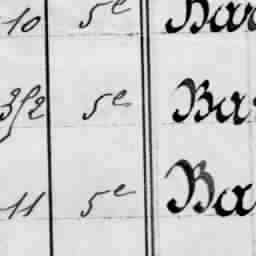 10 5e Bar
3/2 5e Bas
11 5e Ba